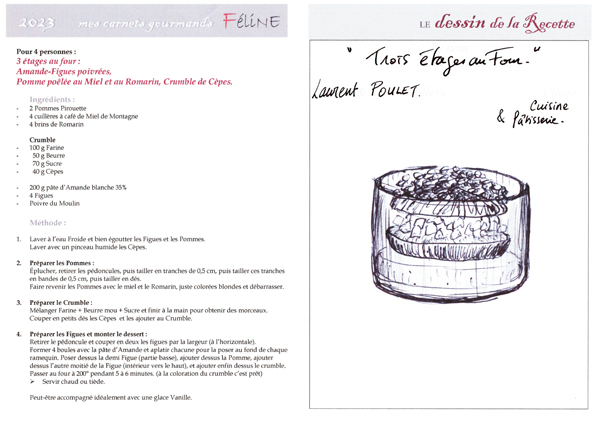 2023 mes carnets gourmands FéLiNE
Pour 4 personnes :
3 étages au four :
Amande-Figues poivrées,
Pomme poêlée au Miel et au Romarin, Crumble de Cèpes.
Ingrédients :
- 2 Pommes Pirouette
- 4 cuillères à café de Miel de Montagne
- 4 brins de Romarin
Crumble
- 100 g Farine
- 50 g Beurre
- 70 g Sucre
- 40 g Cèpes
- 200 g pâte d'Amande blanche 35%
- 4 Figues
- Poivre du Moulin
Méthode :
1. Laver à l'eau Froide et bien égoutter les Figues et les Pommes.
Laver avec un pinceau humide les Cèpes.
2. Préparer les Pommes :
Éplucher, retirer les pédoncules, puis tailler en tranches de 0,5 cm, puis tailler ces tranches
en bandes de 0,5 cm, puis tailler en dés.
Faire revenir les Pommes avec le miel et le Romarin, juste colorées blondes et débarrasser.
3. Préparer le Crumble :
Mélanger Farine + Beurre mou + Sucre et finir à la main pour obtenir des morceaux.
Couper en petits dés les Cèpes et les ajouter au Crumble.
4. Préparer les Figues et monter le dessert :
Retirer le pédoncule et couper en deux les figues par la largeur (à l'horizontale).
Former 4 boules avec la pâte d'Amande et aplatir chacune pour la poser au fond de chaque
ramequin. Poser dessus la demi Figue (partie basse), ajouter dessus la Pomme, ajouter
dessus l'autre moitié de la Figue (intérieur vers le haut), et ajouter enfin dessus le crumble.
Passer au four à 200° pendant 5 à 6 minutes. (à la coloration du crumble c'est prêt)
➤ Servir chaud ou tiède.
Peut-être accompagné idéalement avec une glace Vanille.
LE dessin de la Recette
" Trois étages au Four. "
Laurent POULET.
Cuisine
& Pâtisserie.